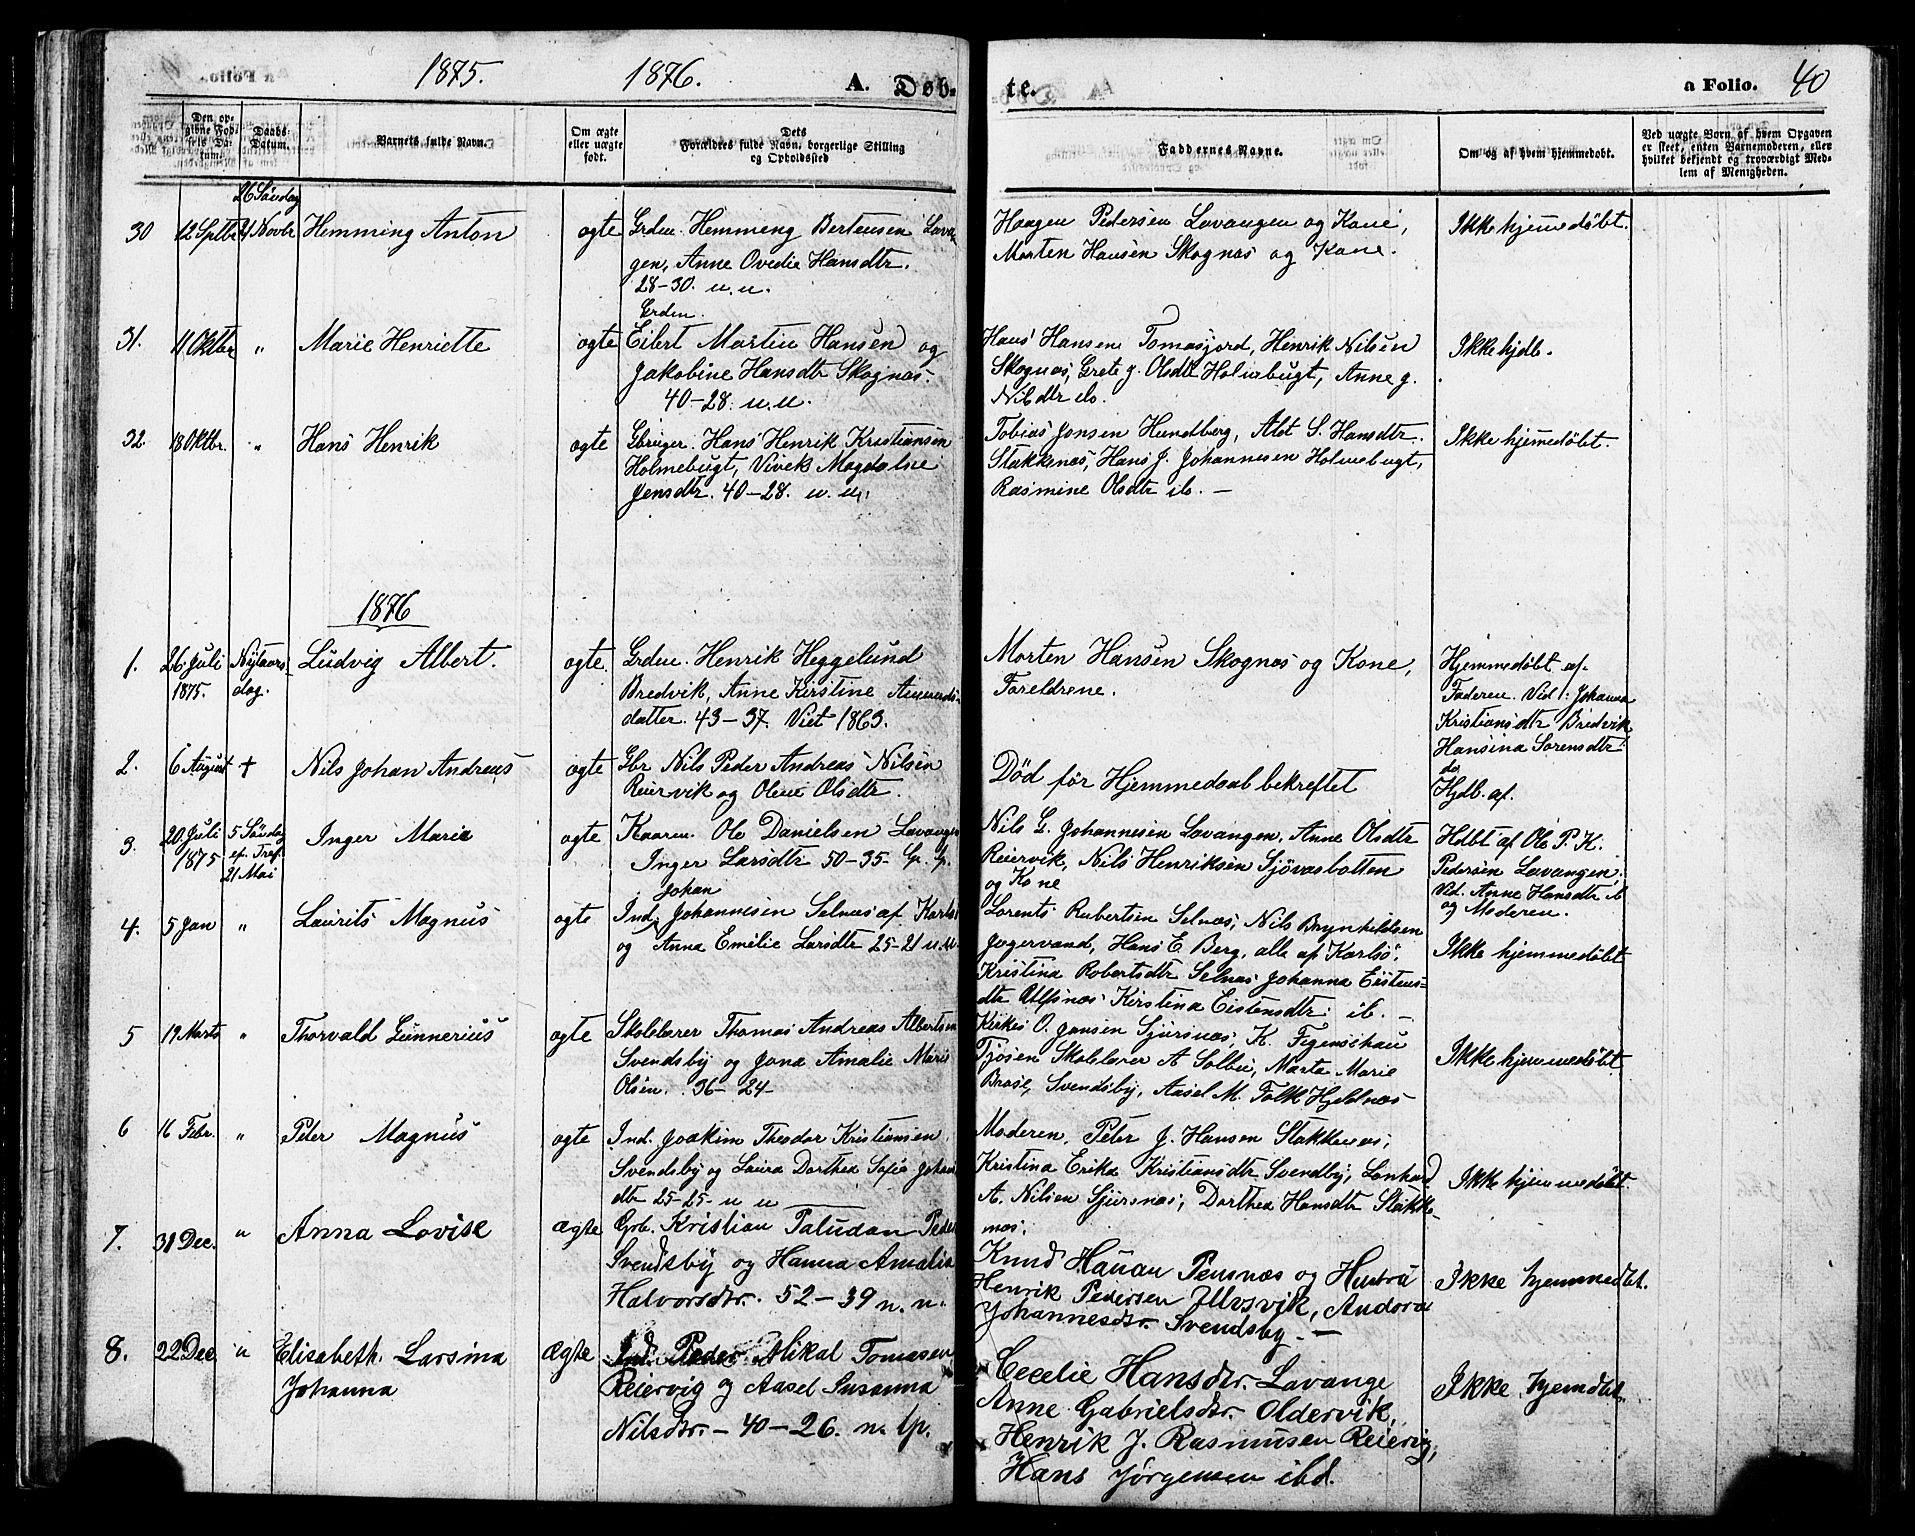 a Folio. 1875. 1876. A. Døb-
te. a Folio. 40
Den op-
givne Fød-
sels Da-
tum.
Daabs-
Datum.
Barnets fulde Navn.
Om ægte
eller uægte
født.
Dets
Forældres fulde Navn, borgerlige Stilling
og Opholdssted
Faddernes Navne.
Om og af hvem hjemmedøbt.
Ved uægte Børn af hvem Opgaven
er skeet, enten Barnemoderen, eller
hvilket bekjendt og troværdigt Med-
lem af Menigheden.
30 12 Septbr 26 Søndag 21 Novbr Hemming Anton ogte Grdm. Hemming Bertensen Lava-
gen, Anne Ovedie Hansdtr.
28-30. u.u.
Haagen Pedersen Lavangen og Kone,
Morten Hansen Skognæs og Kone.
Ikke hjemmedøbt.
31. 11 Oktbr " Marie Henriette ogte Grdm.
Eilert Martin Hansen og
Jakobine Hansdtr Skognæs.
40-28. u.u.
Hans Hansen Tomasjord, Henrik Nilsen
Skognæs, Grete J. Olsdtr Holmebugt, Anne J.
Nilsdtr ib.
Ikke hjdb.
32. 18 Oktbr. " Hans Henrik ogte Gbruger. Hans Henrik Kristiansen
Holmebugt, Vivek Magdalne
Jensdtr. 40-28. u. u.
Tobias Jensen Hundberg, Alet S. Hansdtr.
Stakkenæs, Hans J. Johannesen Holmebugt,
Rasmine Olsdtr ib. —
Ikke hjemedøbt.
1876
1. 26. Juli
1875. Nytaars-
dag. Ludvig Albert. ogte Grdm. Henrik Heggelund
Bredvik, Anne Kirstine Amunds-
datter. 43-37. Viet 1863.
Morten Hansen Skognæs og Kone,
Foreldrene.
Hjemmedøbt af
Faderen. Vid: Johanna
Kristiansdtr Bredvik
Hansina Sorensdtr
do
2. 6 August + Nils Johan Andreas ogte Gbr Nils Peder Andreas Nilsen
Reiervik og Olene Olsdtr.
Død før Hjemmedaab bekreftet
Hjdb. af.
3. 20 Juli
1875 5 Søndag
ef. Tref.
21 Mai Inger Maria ogte Kaarm. Ole Danielsen Lavangen
Inger Larsdtr 50-35 Lp. Lp.
Nils G. Johannesen Lavangen, Anne Olsdtr
Reiervik, Nils Henriksen Sjøvasbotten
og Kone
Hdbt af Ole P. K.
Pedersen Lavangen,
Vid. Anne Hansdtr ib
og Moderen.
4. 5 Jan " Laurits Magnus ogte Johan
Ind. Johannesen Selnæs af Karlsø
og Anna Emilie Larsdtr 25-21 u.u.
Lorents Rubertsen Selnæs, Nils Brynhildsen
Jægervand, Hans E. Berg, alle af Karlsø.
Kristina Robertsdtr Selnæs Johanna Eistens-
dtr Ulfsnæs Kirstina Eistensdtr. ib. —
Ikke hjemmedøbt
5 19 Marts " Thorvald Gunnerius ogte Skolelærer Thomas Andreas Albertsen
Svendsby og Jona Amalie Marie
Olsen. 36-24-
Kirkes O. Jensen Sjursnæs, K. Figenschau
Tjosen Skolelærer A Solbu, Marta Marie
Brose, Svendsby, Aasel M. Falk Hjeldnæs
Ikke hjemmedøbt
6 16 Febr. " Peter Magnus ogte Ind. Joakim Theodor Kristiansen
Svendsby og Laura Dorthea Sofie Johan
dtr 25-25- u u
Moderen, Peter J. Hansen Stakkenæs,
Kristina Erika Kristiansdtr Svendby, Lenhard
A. Nilsen Sjursnæs, Dorthea Hansdtr Stakke-
næs.
Ikke hjemmedøbt.
7. 31 Dec. " Anna Lovise ægte Grb. Kristian Paludan Peder
Svendsby og Hanna Amalia
Halvorsdtr. 52-39 n. n.
Knud Hanau Pensnæs og Hustru
Henrik Pedersen Ullsvik, Andora
Johannesdtr. Svendsby. —
Ikke hjemmedbt.
8. 22 Dec " Elisabeth. Larsina
Johanna ægte Ind. Peder Mikal Tomasen
Reiervig og Aasel Susanna
Nilsdtr. — 40-26. n. Lp.
Cecelie Hansdtr. Lavange
Anne Gabrielsdtr. Oldervik,
Henrik J. Rasmusen Reiervig,
Hans Jørgensen ibd.
Ikke hjemdbt.